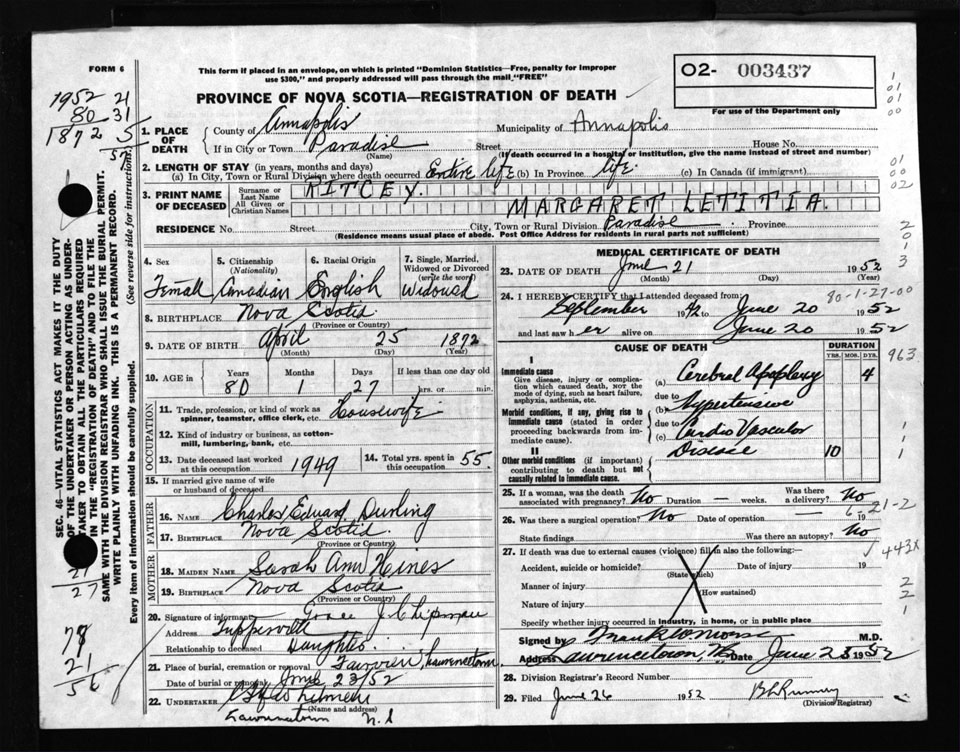 FORM 6
This form if placed in an envelope, on which is printed "Dominion Statistics—Free, penalty for improper
use $300," and properly addressed will pass through the mail "FREE"
02- 003437
For use of the Department only
PROVINCE OF NOVA SCOTIA—REGISTRATION OF DEATH
1952 21
80 31
1872 5
57
1. PLACE OF DEATH
County of Annapolis Municipality of Annapolis
If in City or Town Paradise Street House No.
(Name) (If death occurred in a hospital or institution, give the name instead of street and number)
2. LENGTH OF STAY (in years, months and days)
(a) In City, Town or Rural Division where death occurred Entire life (b) In Province life. (c) In Canada (if immigrant)
3. PRINT NAME OF DECEASED
Surname or Last Name RITCEY.
All Given or Christian Names MARGARET LETITIA.
RESIDENCE No. Street City, Town or Rural Division Paradise Province
(Residence means usual place of abode. Post Office Address for residents in rural parts not sufficient)
4. Sex Female
5. Citizenship (Nationality) Canadian
6. Racial Origin English
7. Single, Married, Widowed or Divorced (write the word) Widowed
8. BIRTHPLACE Nova Scotia
(Province or Country)
9. DATE OF BIRTH April 25 1872
(Month) (Day) (Year)
10. AGE in Years Months Days If less than one day old
80 1 27 hrs. or min.
OCCUPATION
11. Trade, profession, or kind of work as spinner, teamster, office clerk, etc. Housewife
12. Kind of industry or business, as cotton-mill, lumbering, bank, etc.
13. Date deceased last worked at this occupation 1949
14. Total yrs. spent in this occupation 55.
15. If married give name of wife or husband of deceased
FATHER
16. Name Charles Edward Durling
17. Birthplace Nova Scotia
(Province or Country)
MOTHER
18. Maiden Name Sarah Ann Heines
19. Birthplace Nova Scotia
(Province or Country)
20. Signature of informant Grace J. Chipman
Address Tupperville
Relationship to deceased Daughter.
21. Place of burial, cremation or removal Fairview, Lawrencetown
Date of burial or removal June 23/52
22. UNDERTAKER
(Name and address)
Lawrencetown N.S
MEDICAL CERTIFICATE OF DEATH
23. DATE OF DEATH June 21 1952
(Month) (Day) (Year)
24. I HEREBY CERTIFY that I attended deceased from:
80-1-27-00
September 1942 to June 20 1952
and last saw her alive on June 20 1952
CAUSE OF DEATH
DURATION
YRS. MOS. DYS.
963
I
Immediate cause
Give disease, injury or complication which caused death, NOT the mode of dying, such as heart failure, asphyxia, asthenia, etc.
(a) Cerebral Apoplexy 4
due to
Morbid conditions, if any, giving rise to immediate cause (stated in order proceeding backwards from immediate cause).
(b) Hypertensive
due to
(c) Cardio Vascular
II
Other morbid conditions (if important) contributing to death but not causally related to immediate cause.
Disease 10
25. If a woman, was the death associated with pregnancy? No Duration — weeks. Was there a delivery? No
6-21-2
26. Was there a surgical operation? No Date of operation — 19
State findings Was there an autopsy? No
443X
27. If death was due to external causes (violence) fill in also the following:—
Accident, suicide or homicide? Date of injury 19
(State which)
Manner of injury
(How sustained)
Nature of injury
Specify whether injury occurred in industry, in home, or in public place
Signed by M.D.
Address Lawrencetown, NS Date June 23 1952
28. Division Registrar's Record Number
29. Filed June 26 1952
(Division Registrar)
SEC. 46—VITAL STATISTICS ACT MAKES IT THE DUTY
OF THE UNDERTAKER OR PERSON ACTING AS UNDER-
TAKER TO OBTAIN ALL THE PARTICULARS REQUIRED
IN THE "REGISTRATION OF DEATH" AND TO FILE THE
SAME WITH THE DIVISION REGISTRAR WHO SHALL ISSUE THE BURIAL PERMIT.
WRITE PLAINLY WITH UNFADING INK. THIS IS A PERMANENT RECORD.
Every item of information should be carefully supplied. (See reverse side for instructions).